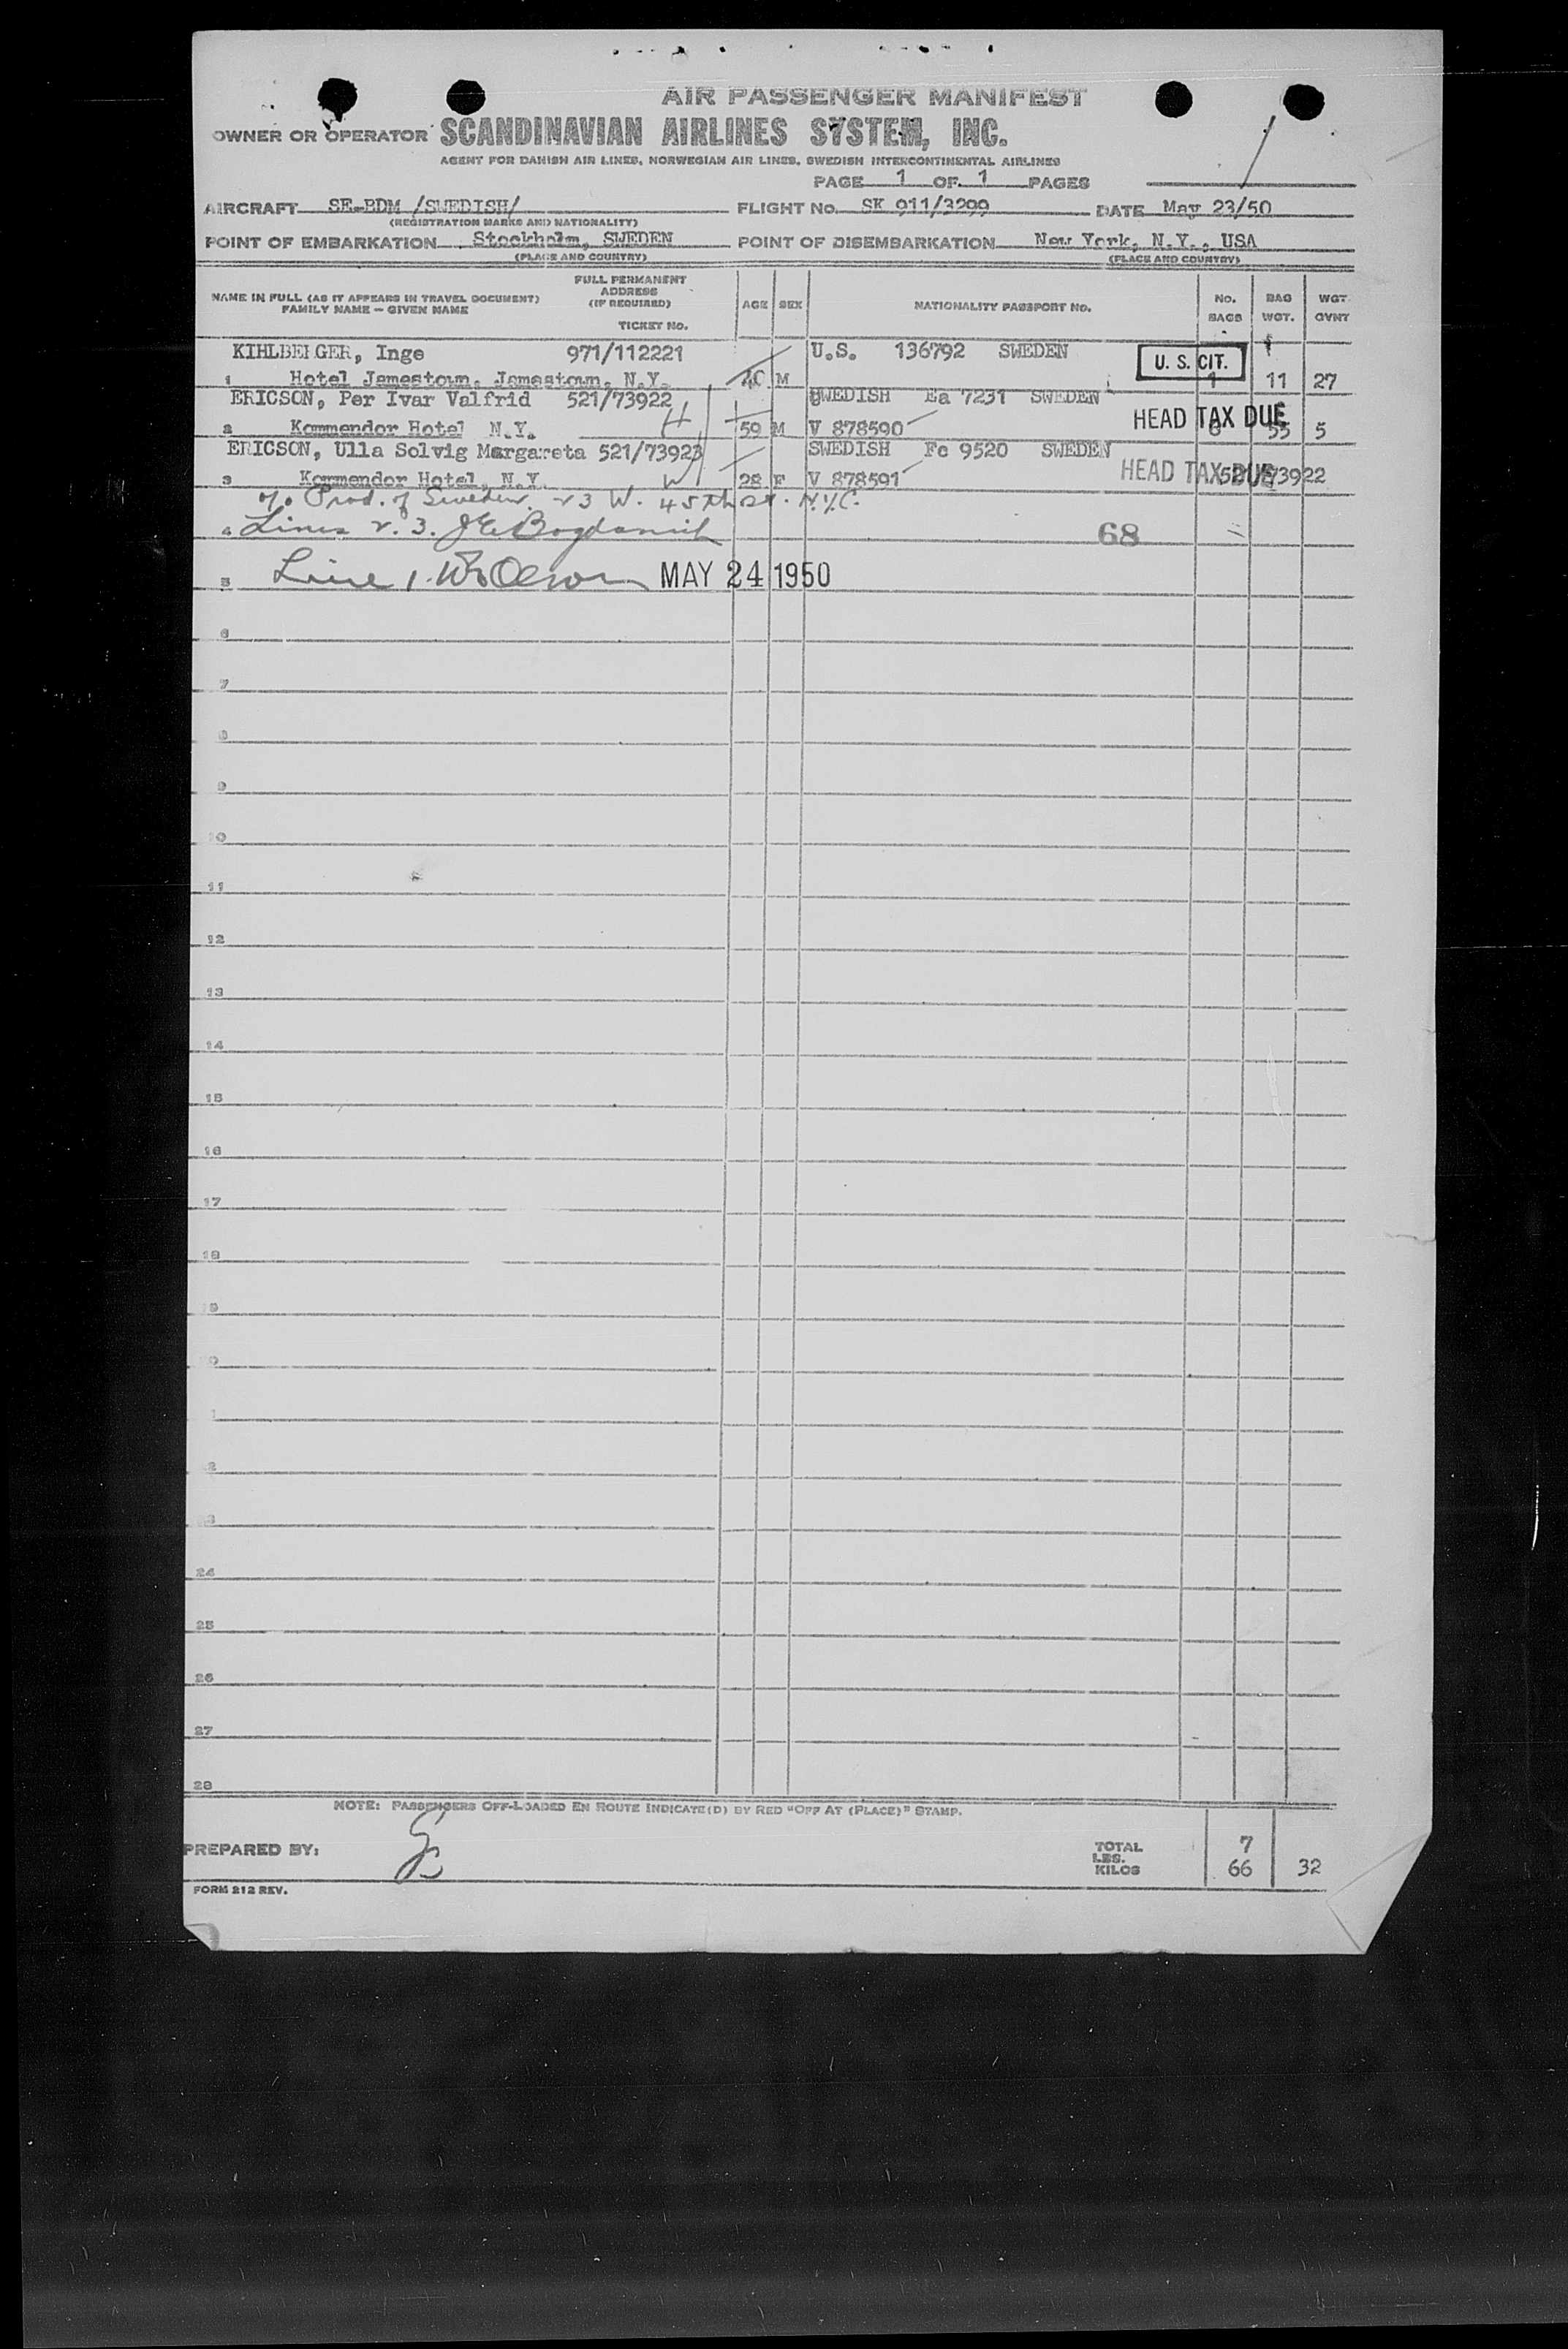 AIR PASSENGER MANIFEST
OWNER OR OPERATOR SCANDINAVIAN AIRLINES SYSTEM, INC.
AGENT FOR DANISH AIR LINES, NORWEGIAN AIR LINES, SWEDISH INTERCONTINENTAL AIRLINES
PAGE 1 OF 1 PAGES
AIRCRAFT SE-BDM /SWEDISH/ FLIGHT No. SK 911/3299 DATE May 23/50
(REGISTRATION MARKS AND NATIONALITY)
POINT OF EMBARKATION Stockholm, SWEDEN POINT OF DISEMBARKATION New York, N.Y., USA
(PLACE AND COUNTRY) (PLACE AND COUNTRY)
NAME IN FULL (AS IT APPEARS IN TRAVEL DOCUMENT) FAMILY NAME – GIVEN NAME FULL PERMANENT ADDRESS (IF REQUIRED) TICKET No. AGE SEX NATIONALITY PASSPORT No. No. BAGS BAG WGT. WGT GVNT
KIHLBERGER, Inge 971/112221 U.S. 136792 SWEDEN U. S. CIT.
1 Hotel Jamestown, Jamestown, N.Y. 40 M 1 11 27
ERICSON, Per Ivar Valfrid 521/73922 SWEDISH Ea 7231 SWEDEN
2 Kommendor Hotel N.Y. H 59 M V 878590 HEAD TAX DUE 6 55 5
ERICSON, Ulla Solvig Margareta 521/73923 SWEDISH Fc 9520 SWEDEN
3 Kommendor Hotel, N.Y. W 28 F V 878591 HEAD TAX DUE 521/73922
c/o Prod. of Sweden, 23 W. 45th St. N.Y.C.
4 Lines 2. 3. 68
5 Line 1. MAY 24 1950
6
7
8
9
10
11
12
13
14
15
16
17
18
19
20
1
2
23
24
25
26
27
28
NOTE: PASSENGERS OFF-LOADED EN ROUTE INDICATE(D) BY RED "OFF AT (PLACE)" STAMP.
PREPARED BY: TOTAL 7
LBS.
KILOS 66 32
FORM 212 REV.